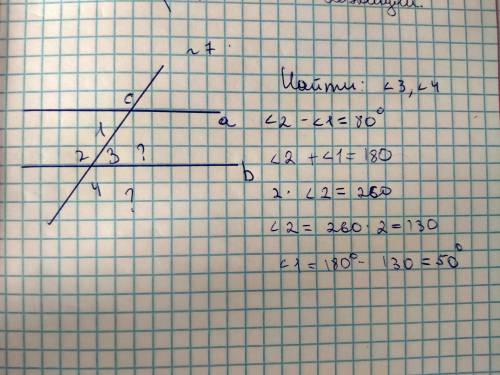 ~ 7.
Найти: ∠3, ∠4
c
a
1
2 3 ?
b
4 ?
∠2 - ∠1 = 80°
∠2 + ∠1 = 180
2 · ∠2 = 260
∠2 = 260 · 2 = 130
∠1 = 180° - 130 = 50°